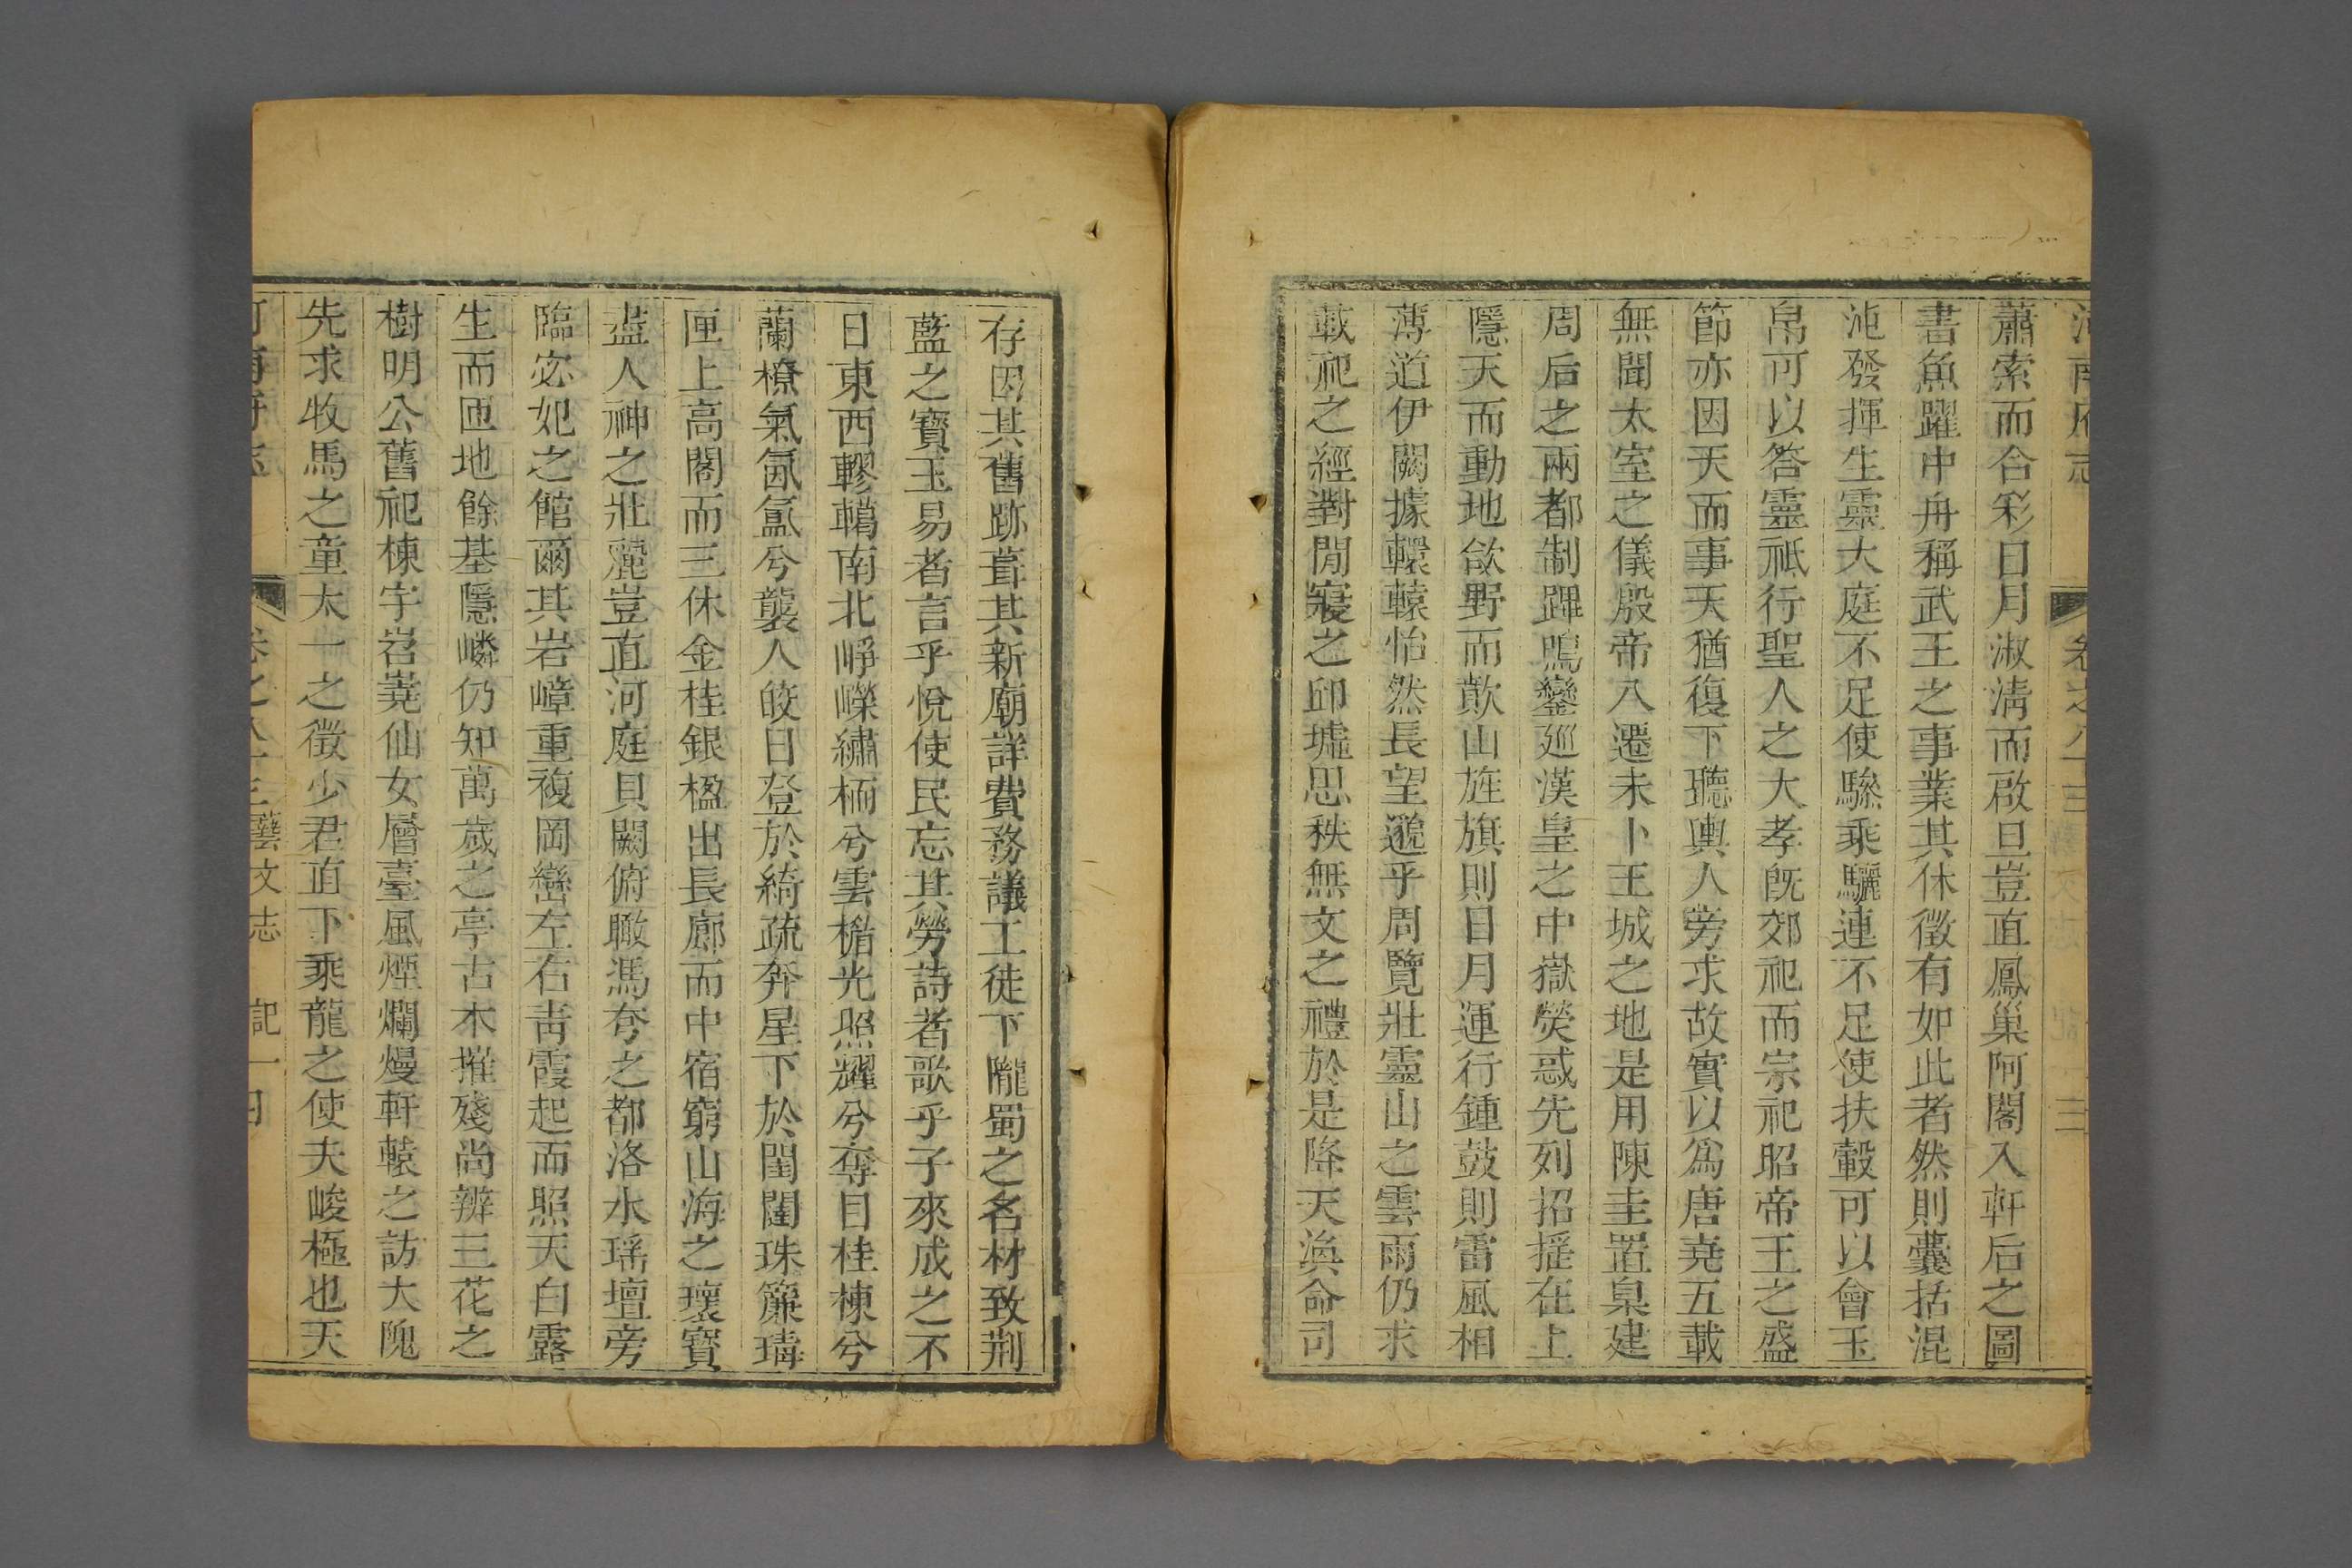 河南府志 卷之八十三 藝文志 記 三
蕭索而合彩日月淑清而啟旦豈直鳳巢阿閣入軒后之圖
書魚躍中舟稱武王之事業其休徵有如此者然則囊括混
沌發揮生靈大庭不足使驂乘驪連不足使扶轂可以會玉
帛可以答靈祇行聖人之大孝旣郊祀而宗祀昭帝王之盛
節亦因天而事天猶復下聽輿人旁求故實以爲唐堯五載
無聞太室之儀殷帝八遷未卜王城之地是用陳圭置臬建
周后之兩都制蹕鳴鑾廵漢皇之中嶽熒惑先列招搖在上
隱天而動地歘野而歕山旌旗則日月運行鍾鼓則雷風相
薄道伊闕據轘轅怡然長望邈乎周覽壯靈山之雲雨仍求
載祀之經對閒寢之邱墟思秩無文之禮於是降天渙命司
存因其舊跡葺其新廟詳費務議工徒下隴蜀之名材致荆
藍之寶玉易者言乎悅使民忘其勞詩者歌乎子來成之不
日東西轇轕南北崢嶸繡栭兮雲楣光照耀兮奪目桂棟兮
蘭橑氣氤氳兮襲人皎日登於綺疏奔星下於閨闥珠簾瑇
匣上高閣而三休金桂銀楹出長廊而中宿窮山海之瓌寶
盡人神之壯麗豈直河庭貝闕俯瞰馮夸之都洛水瑤壇旁
臨宓妃之館爾其岩嶂重複岡巒左右靑霞起而照天白露
生而匝地餘基隱嶙仍知萬歲之亭古木摧殘尚辨三花之
樹明公舊祀棟宇岧嶤仙女層臺風煙爛熳軒轅之訪大隗
先求牧馬之童太一之徵少君直下乘龍之使夫峻極也天
河南府志 卷之八十三 藝文志 記一 四